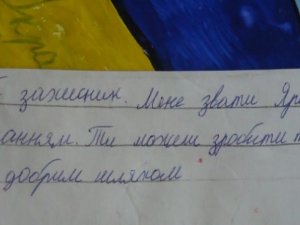 Укра
захисник. Мене звати Яри
анням. Ти можеш зробити
добрим шляхом